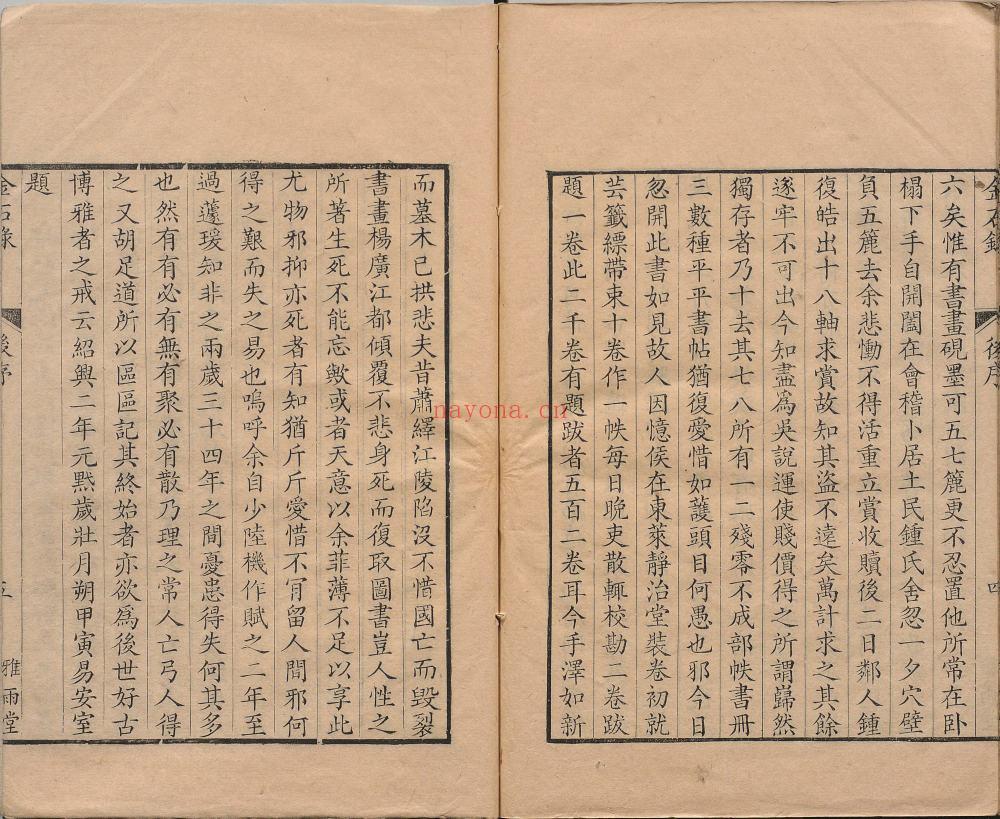 金石錄
後序
六矣惟有書畫硯墨可五七簏更不忍置他所常在卧
榻下手自開闔在會稽卜居土民鍾氏舍忽一夕穴壁
負五簏去余悲慟不得活重立賞收贖後二日鄰人鍾
復皓出十八軸求賞故知其盜不遠矣萬計求之其餘
遂牢不可出今知盡為吳說運使賤價得之所謂巋然
獨存者乃十去其七八所有一二殘零不成部帙書冊
三數種平平書帖猶復愛惜如護頭目何愚也邪今日
忽開此書如見故人因憶侯在東萊靜治堂裝卷初就
芸籤縹帶束十卷作一帙每日晚吏散輒校勘二卷跋
題一卷此二千卷有題跋者五百二卷耳今手澤如新
而墓木已拱悲夫昔蕭繹江陵陷沒不惜國亡而毀裂
書畫楊廣江都傾覆不悲身死而復取圖書豈人性之
所著生死不能忘歟或者天意以余菲薄不足以享此
尤物邪抑亦死者有知猶斤斤愛惜不肎留人間邪何
得之艱而失之易也嗚呼余自少陸機作賦之二年至
過蘧瑗知非之兩歲三十四年之間憂患得失何其多
也然有有必有無有聚必有散乃理之常人亡弓人得
之又胡足道所以區區記其終始者亦欲為後世好古
博雅者之戒云紹興二年元黓歲壯月朔甲寅易安室
題
金石錄
後序
五
雅雨堂
nayona.cn